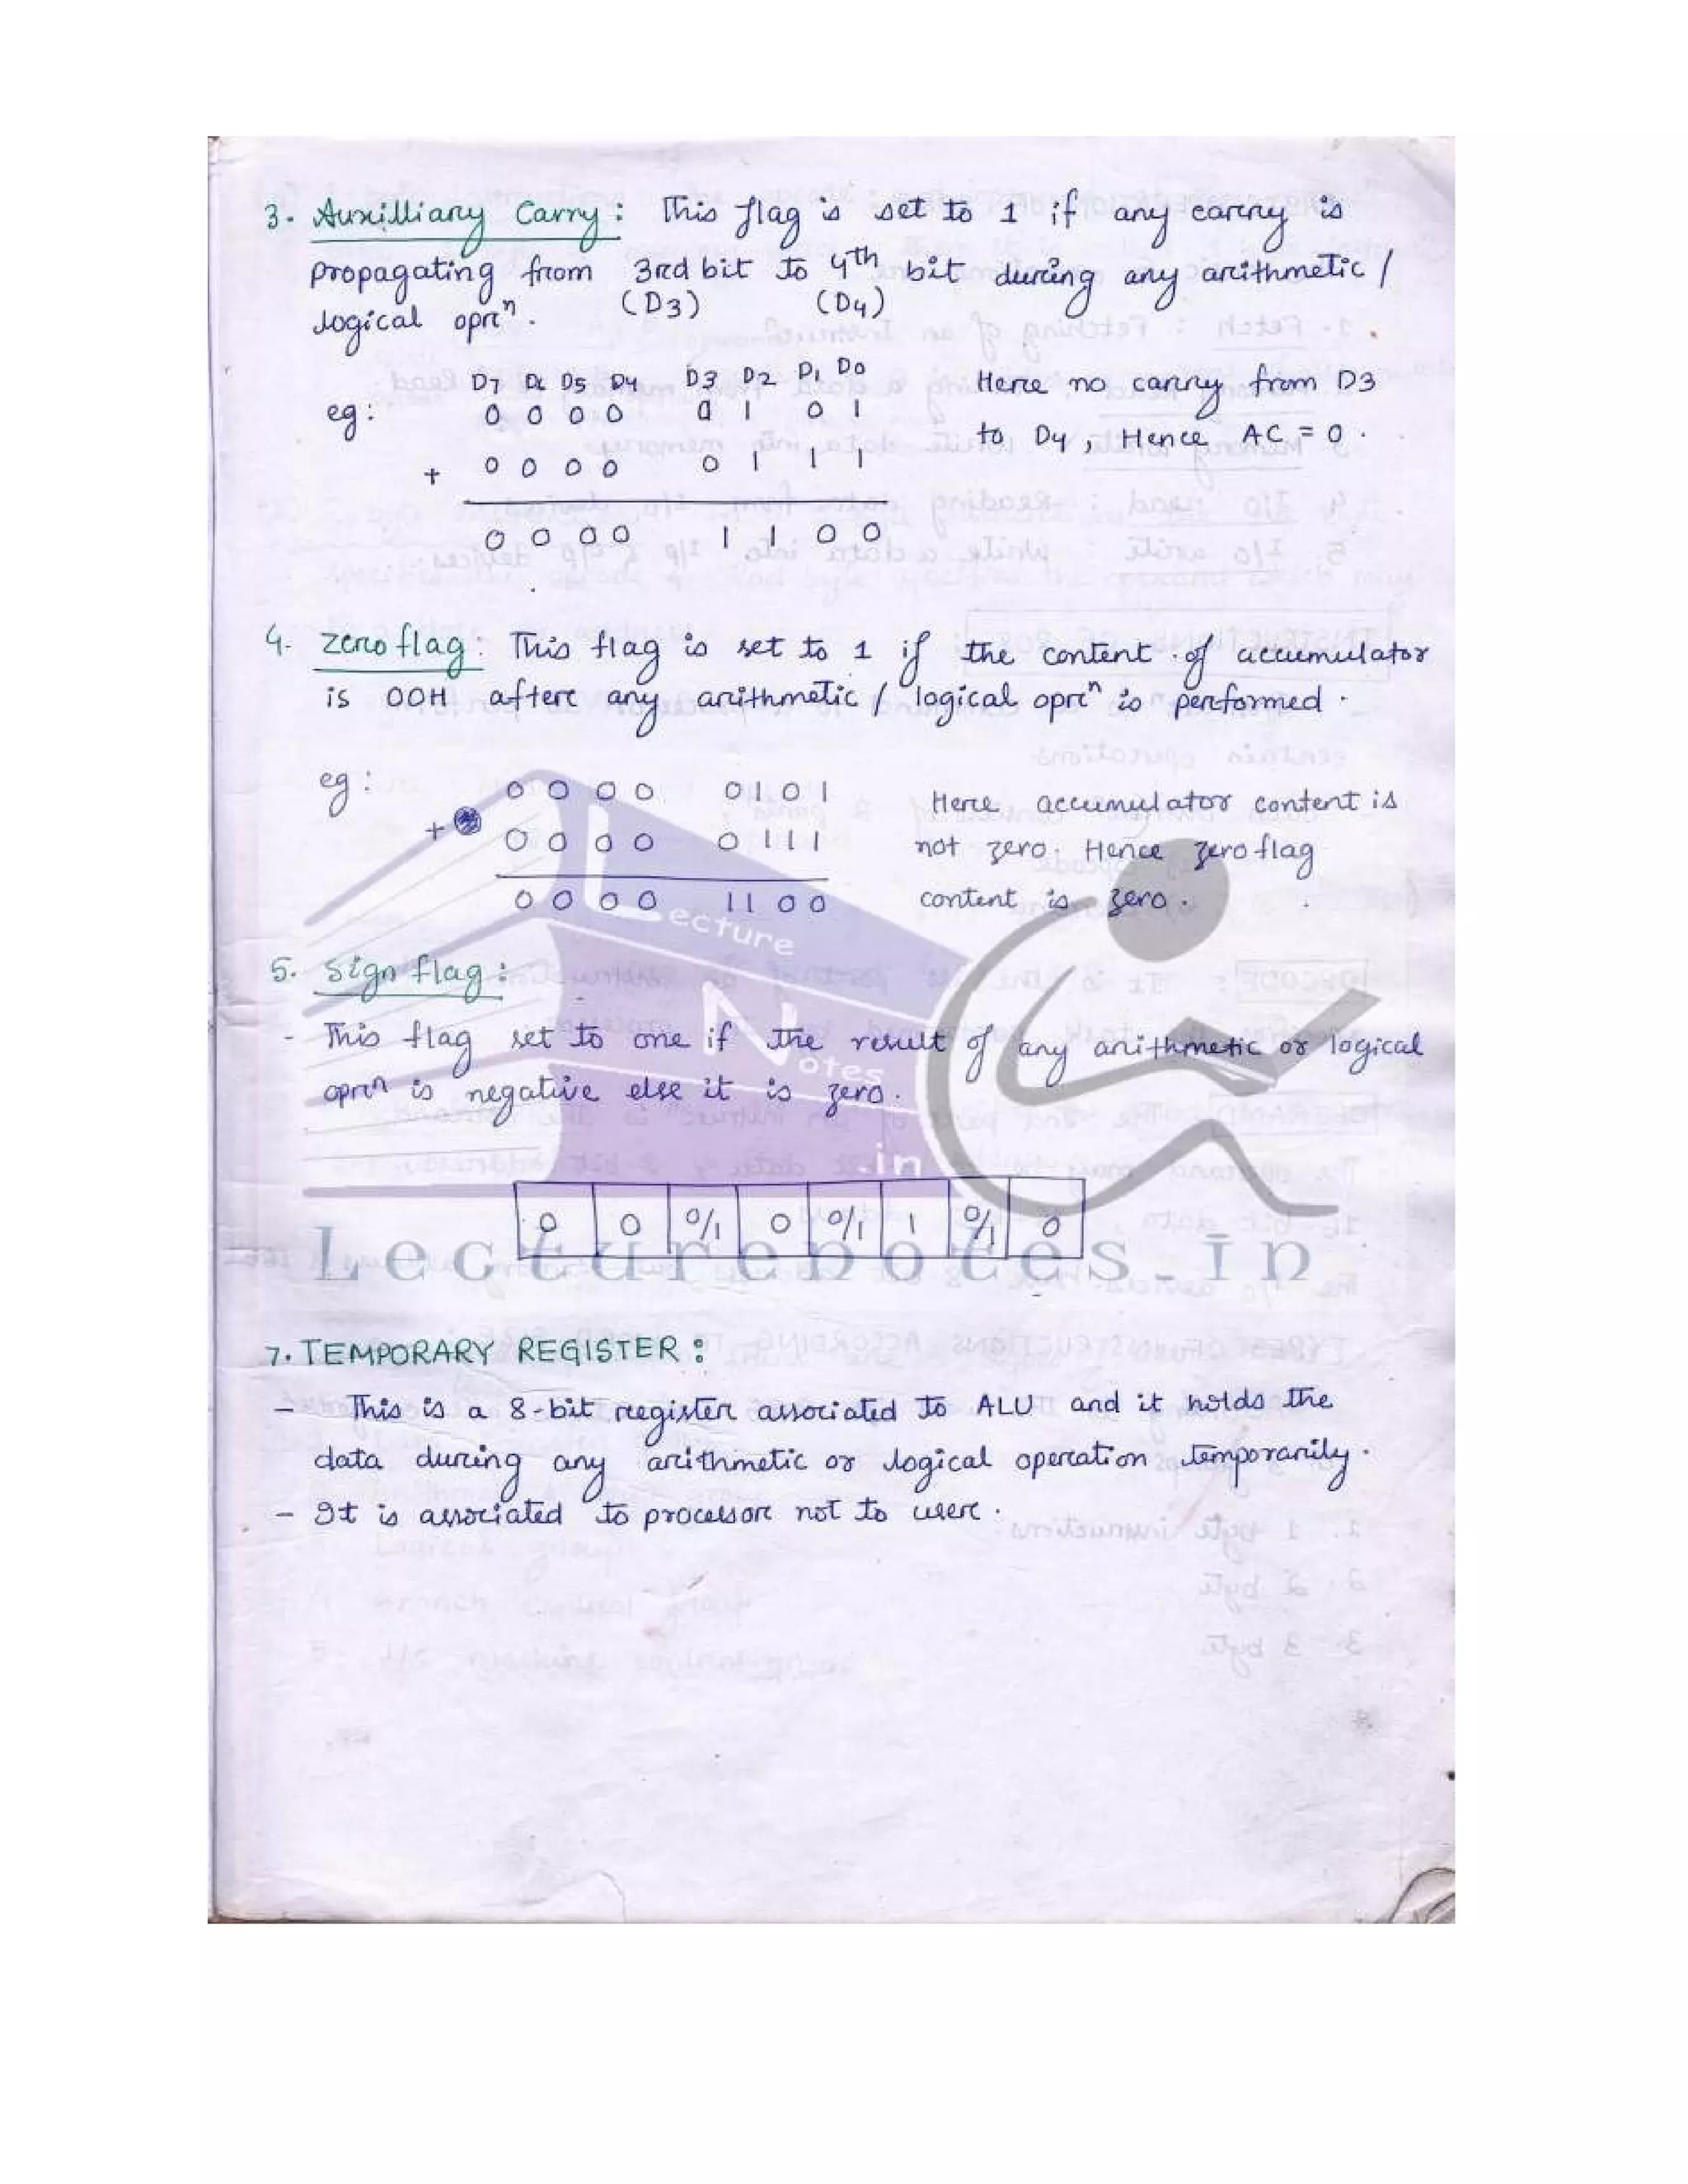 3. Auxilliary Carry : This flag is set to 1 if any carry is
propagating from 3rd bit to 4th bit during any arithmetic /
logical oprn. (D3) (D4)
D7 D6 D5 D4 D3 D2 D1 D0
eg: 0 0 0 0 0 1 0 1
+ 0 0 0 0 0 1 1 1
0 0 0 0 1 1 0 0
Here no carry from D3
to D4, Hence AC = 0.
4. Zero flag: This flag is set to 1 if the content of accumulator
is 00H after any arithmetic / logical oprn is performed.
eg: 0 0 0 0 0 1 0 1
+ 0 0 0 0 0 1 1 1
0 0 0 0 1 1 0 0
Here accumulator content is
not zero. Hence zero flag
content is zero.
5. Sign flag:
- This flag set to one if the result of any arithmetic or logical
oprn is negative else it is zero.
0 0 0/1 0 0/1 1 0/1 0
Lecture
Notes
.in
Lecturenotes.in
7. TEMPORARY REGISTER:
- This is a 8-bit register associated to ALU and it holds the
data during any arithmetic or logical operation temporarily.
- It is associated to processor not to user.